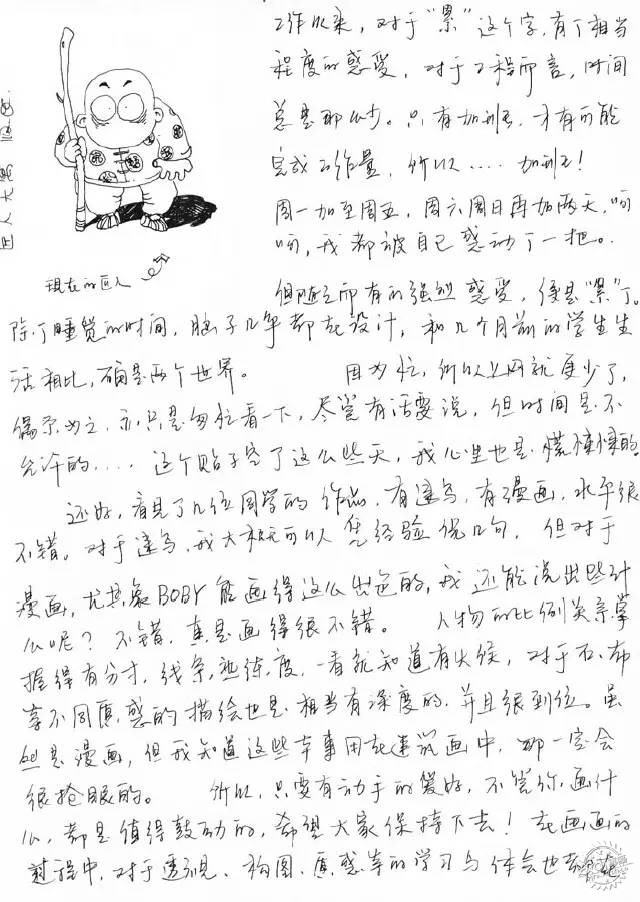 工作以来，对于“累”这个字，有了相当
程度的感受，对于工程而言，时间
总是那么少。只有加班，才有可能
完成工作量，所以....加班！
周一加至周五，周六周日再加两天，呵
呵，我都被自己感动了一把。
但随之而有的强烈感受，便是“累”了。
除了睡觉的时间，脑子几乎都在设计，和几个月前的学生生
活相比，确是两个世界。 因为忙，所以上网就更少了，
偶尔为之，亦只是匆忙看一下，尽管有话要说，但时间是不
允许的.... 这个贴子空了这么些天，我心里也是慌慌的。
还好，看见了几位同学的作品，有速写，有漫画，水平很
不错。对于速写，我大概可以凭经验说几句，但对于
漫画，尤其象BOBY能画得这么出色的，我还能说出些什
么呢？不错，真是画得很不错。 人物的比例关系掌
握得有分寸，线条，熟练度，一看就知道有火候，对于石、布
等不同质感的描绘也是相当有深度的，并且很到位。虽
然是漫画，但我知道这些本事用在建筑画中，那一定会
很抢眼的。 所以，只要有动手的爱好，不管你画什
么，都是值得鼓动的，希望大家保持下去！在画画的
过程中，对于透视、构图、质感等的学习与体会也都在
现在的巨人
巨人大驾